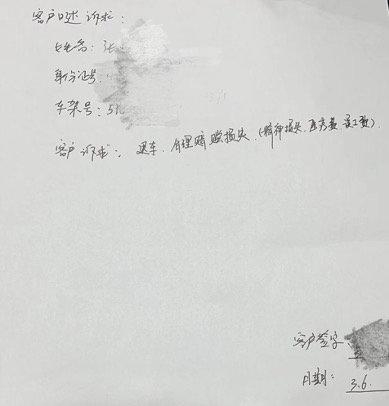 客户口述诉求：
姓名：张
身份证号：
车架号：
客户诉求：退车、合理赔偿损失（精神损失、医疗费、误工费）
客户签字：
日期：3.6.